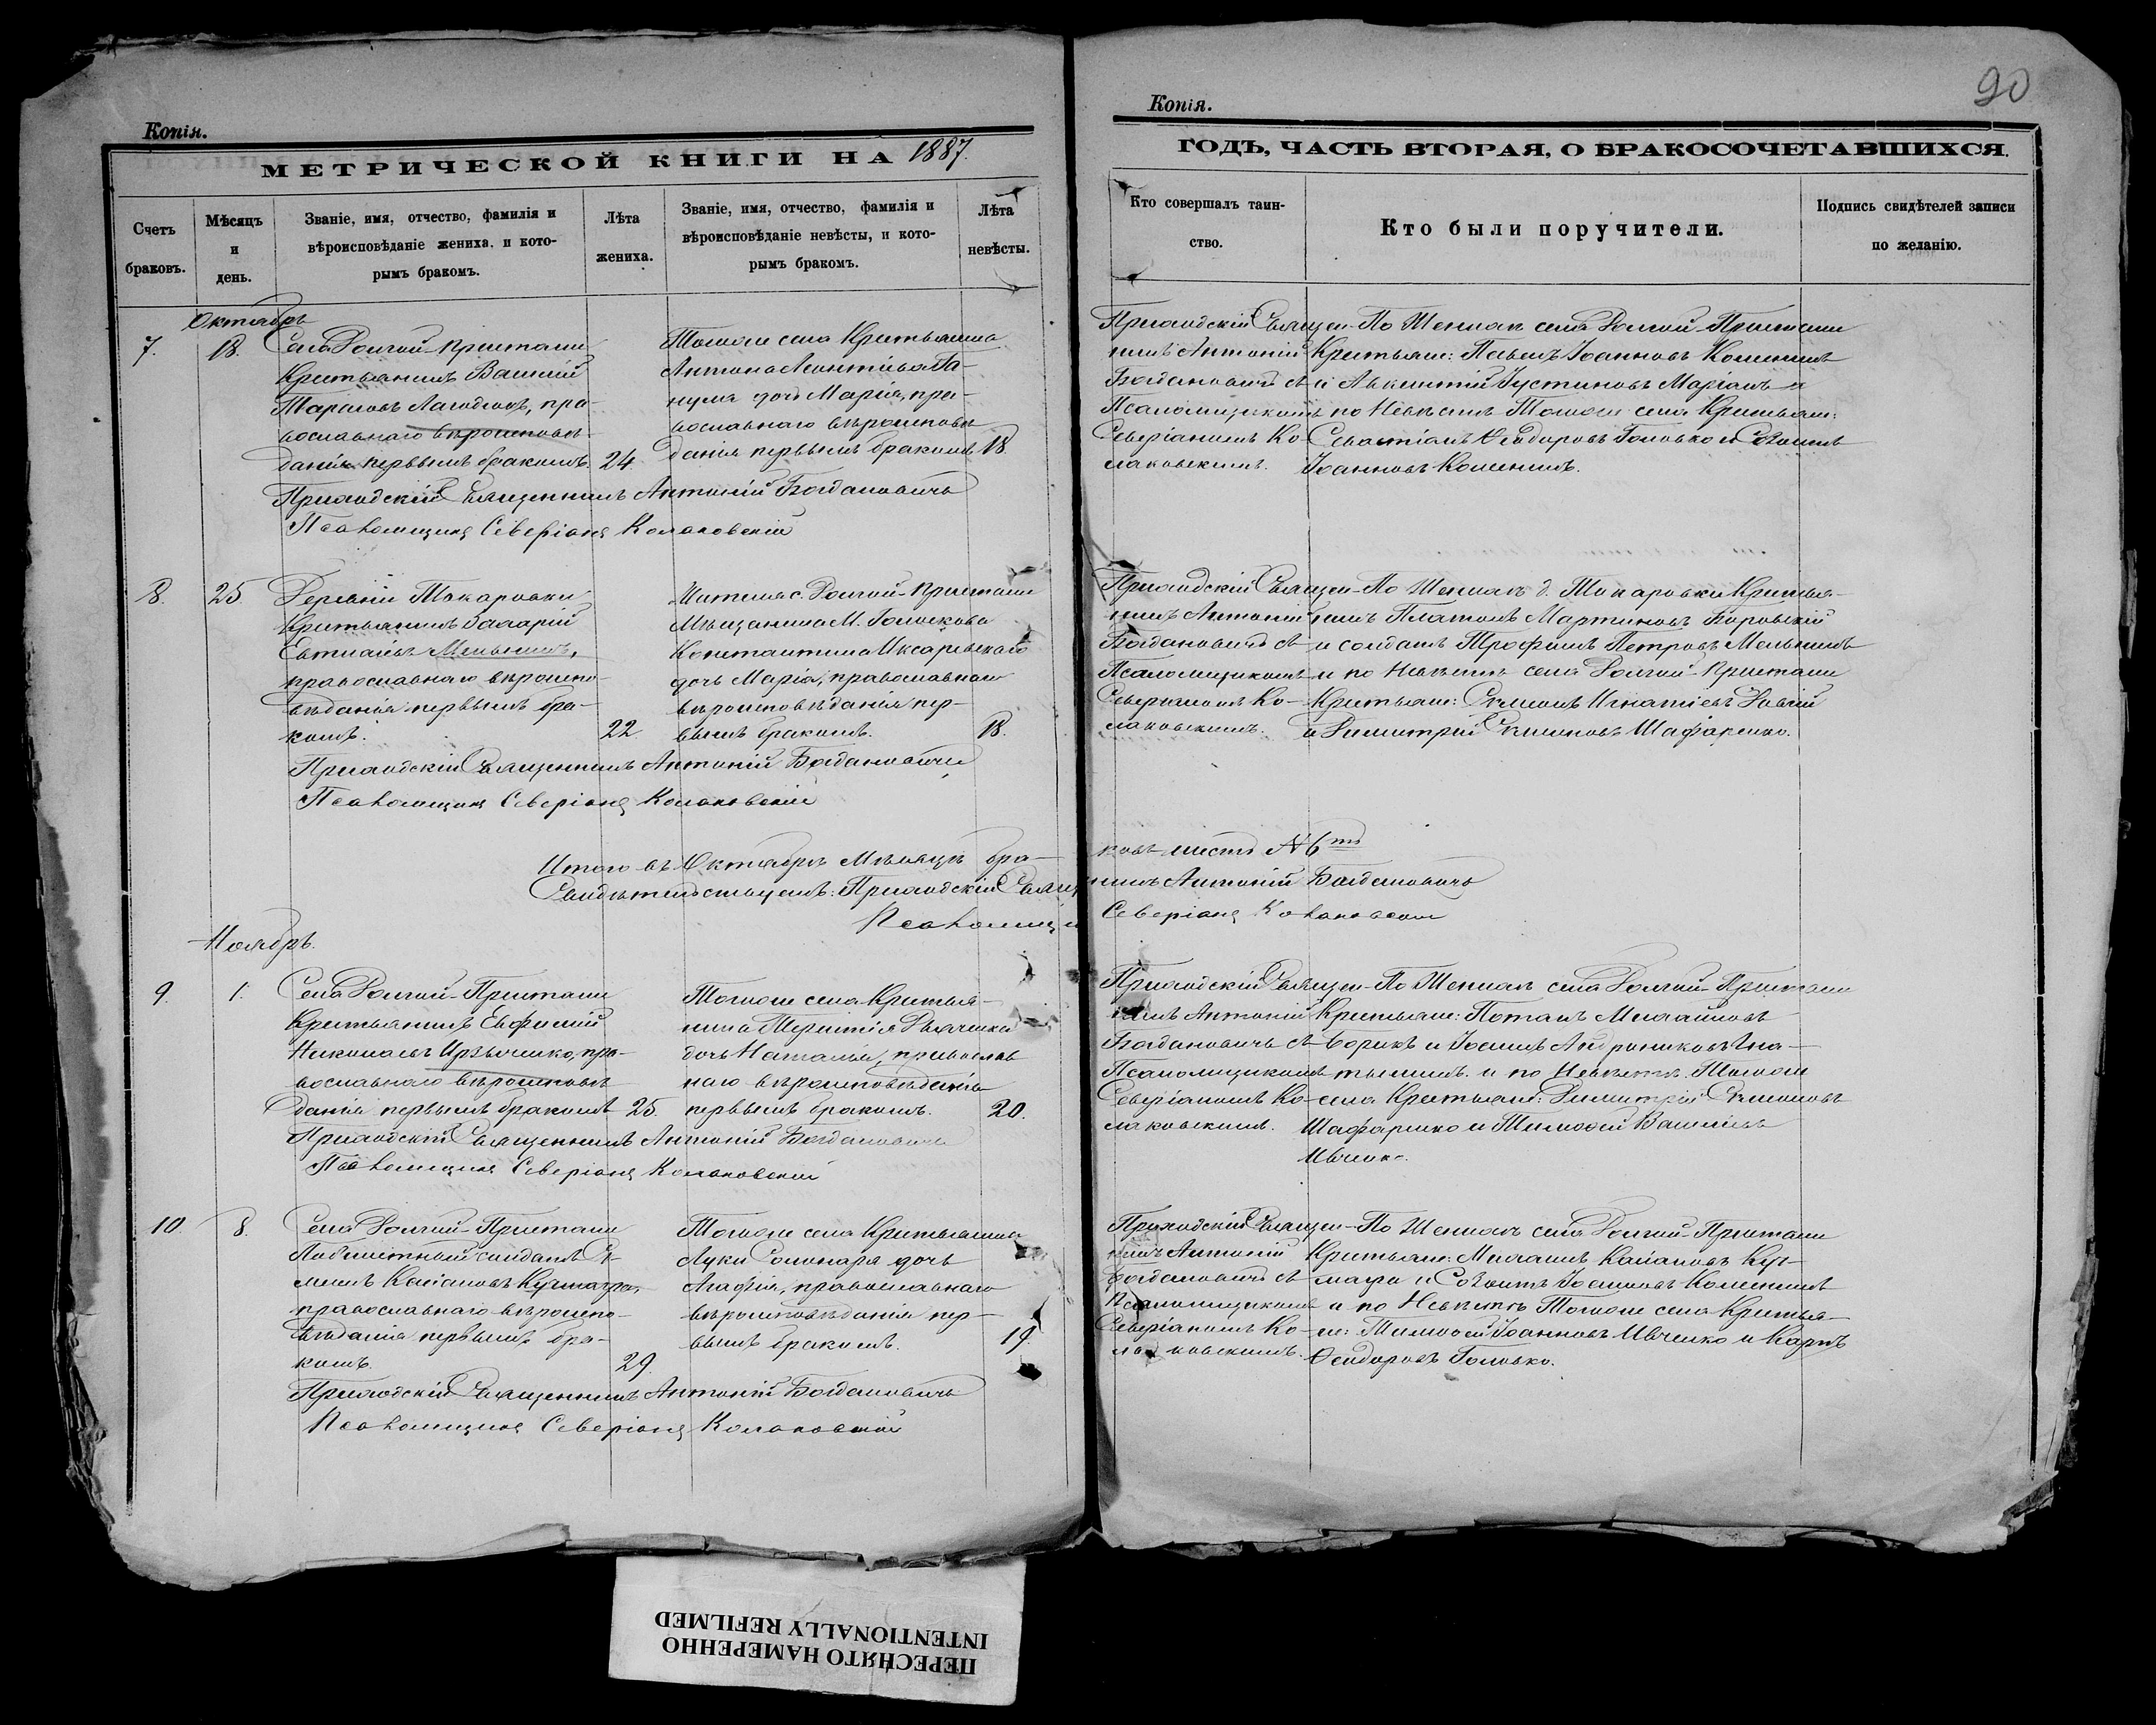 Копія.
МЕТРИЧЕСКОЙ КНИГИ НА 1887.
Счетъ браковъ.
Мѣсяцъ и день.
Званіе, имя, отчество, фамилія и
вѣроисповѣданіе жениха, и кото-
рымъ бракомъ.
Лѣта жениха.
Званіе, имя, отчество, фамилія и
вѣроисповѣданіе невѣсты, и кото-
рымъ бракомъ.
Лѣта невѣсты.
Октябрь
7.
18.
Села Долгой-Пристани
Крестьянинъ Василій
Тарасовъ пра-
вославнаго вѣроисповѣ-
данія первымъ бракомъ.
24
Тогоже села Крестьянина
Антона Леонтіева Га-
нула дочь Марія, пра-
вославнаго вѣроисповѣ
данія первымъ бракомъ
18.
Приходскій Священникъ Антоній Богдановичъ
Псаломщикъ Северіанъ Колаковскій
8.
25.
Деревни Токаровки
Крестьянинъ Захарій
Евтихіевъ Мельникъ,
православнаго вѣроиспо-
вѣданія первымъ бра-
комъ.
22
Жителя с. Долгой-Пристани
Мѣщанина М. Голоскова
Константина
дочь Марія, православнаго
вѣроисповѣданія пер-
вымъ бракомъ.
18.
Приходскій Священникъ Антоній Богдановичъ
Псаломщикъ Северіанъ Колаковскій
Итого въ Октябрѣ Мѣсяцѣ бра-
Свидѣтельствуемъ: Приходскій Свящ
Псаломщи
Ноябрь.
9.
1.
Села Долгой-Пристани
Крестьянинъ Евфимій
Николаевъ пра-
вославнаго вѣроисповѣ
данія первымъ бракомъ
25.
Тогоже села Крестья-
нина Терентія Дьяченка
дочь Наталья, православ
наго вѣроисповѣданія
первымъ бракомъ.
20.
Приходскій Священникъ Антоній Богдановичъ
Псаломщикъ Северіанъ Колаковскій
10.
8.
Села Долгой-Пристани
солдатъ Си-
меонъ Касіановъ
православнаго вѣроиспо-
вѣданія первымъ бра-
комъ.
29.
Тогоже села Крестьянина
Луки дочь
Агафія, православнаго
вѣроисповѣданія пер-
вымъ бракомъ.
19
Приходскій Священникъ Антоній Богдановичъ
Псаломщикъ Северіанъ Колаковскій
90
Копія.
ГОДЪ, ЧАСТЬ ВТОРАЯ, О БРАКОСОЧЕТАВШИХСЯ.
Кто совершалъ таин-
ство.
Кто были поручители.
Подпись свидѣтелей записи
по желанію.
Приходскій Священ-
никъ Антоній
Богдановичъ съ
Псаломщикомъ
Северіаномъ Ко-
лаковскимъ.
По Женихѣ села Долгой-Пристани
Крестьяне: Павелъ Іоанновъ
и Авксентій Іустиновъ и
по Невѣстѣ Тогоже села Крестьян:
Севастіанъ Ѳеодоровъ Головко и Созонтъ
Іоанновъ
Приходскій Священ-
никъ Антоній
Богдановичъ съ
Псаломщикомъ
Северіаномъ Ко-
лаковскимъ.
По Женихѣ д. Токаровки Крестья-
нинъ Платонъ Мартиновъ Боровскій
и солдатъ Трофимъ Петровъ Мельникъ
и по Невѣстѣ села Долгой-Пристани
Крестьяне: Симеонъ Игнатіевъ
и Димитрій Симеоновъ Шафаренко.
ковъ шесть № 6ть
никъ Антоній Богдановичъ
Северіанъ Колаковскій
Приходскій Священ-
никъ Антоній
Богдановичъ съ
Псаломщикомъ
Северіаномъ Ко-
лаковскимъ.
По Женихѣ села Долгой-Пристани
Крестьяне: Потапъ Михайловъ
и Андрониковъ Гна-
и по Невѣстѣ Тогоже
села Крестьяне: Димитрій Симеоновъ
Шафаренко и Тимоѳей Василіевъ
Ивченко.
Приходскій Священ-
никъ Антоній
Богдановичъ съ
Псаломщикомъ
Северіаномъ Ко-
лаковскимъ.
По Женихѣ села Долгой-Пристани
Крестьяне: Михаилъ Касіановъ
и Созонтъ Іоанновъ
и по Невѣстѣ Тогоже села Крестья-
не: Тимоѳей Іоанновъ Ивченко и Карпъ
Ѳеодоровъ Головко.
ПЕРЕСНЯТО НАМЕРЕННО
INTENTIONALLY REFILMED